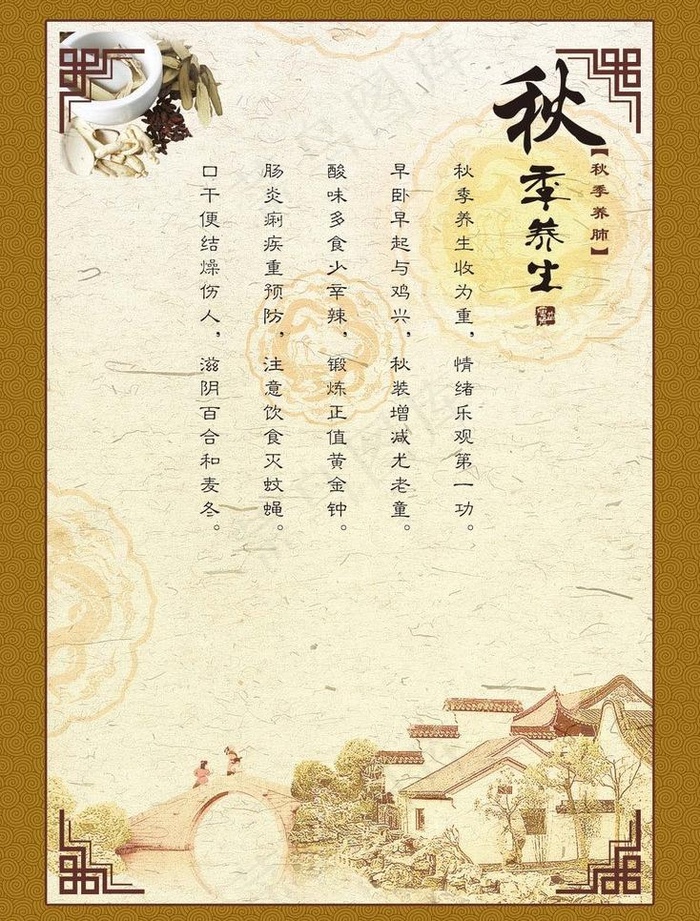 秋季养生
【秋季养肺】
秋季养生收为重，情绪乐观第一功。
早卧早起与鸡兴，秋装增减尤老童。
酸味多食少辛辣，锻炼正值黄金钟。
肠炎痢疾重预防，注意饮食灭蚊蝇。
口干便结燥伤人，滋阴百合和麦冬。